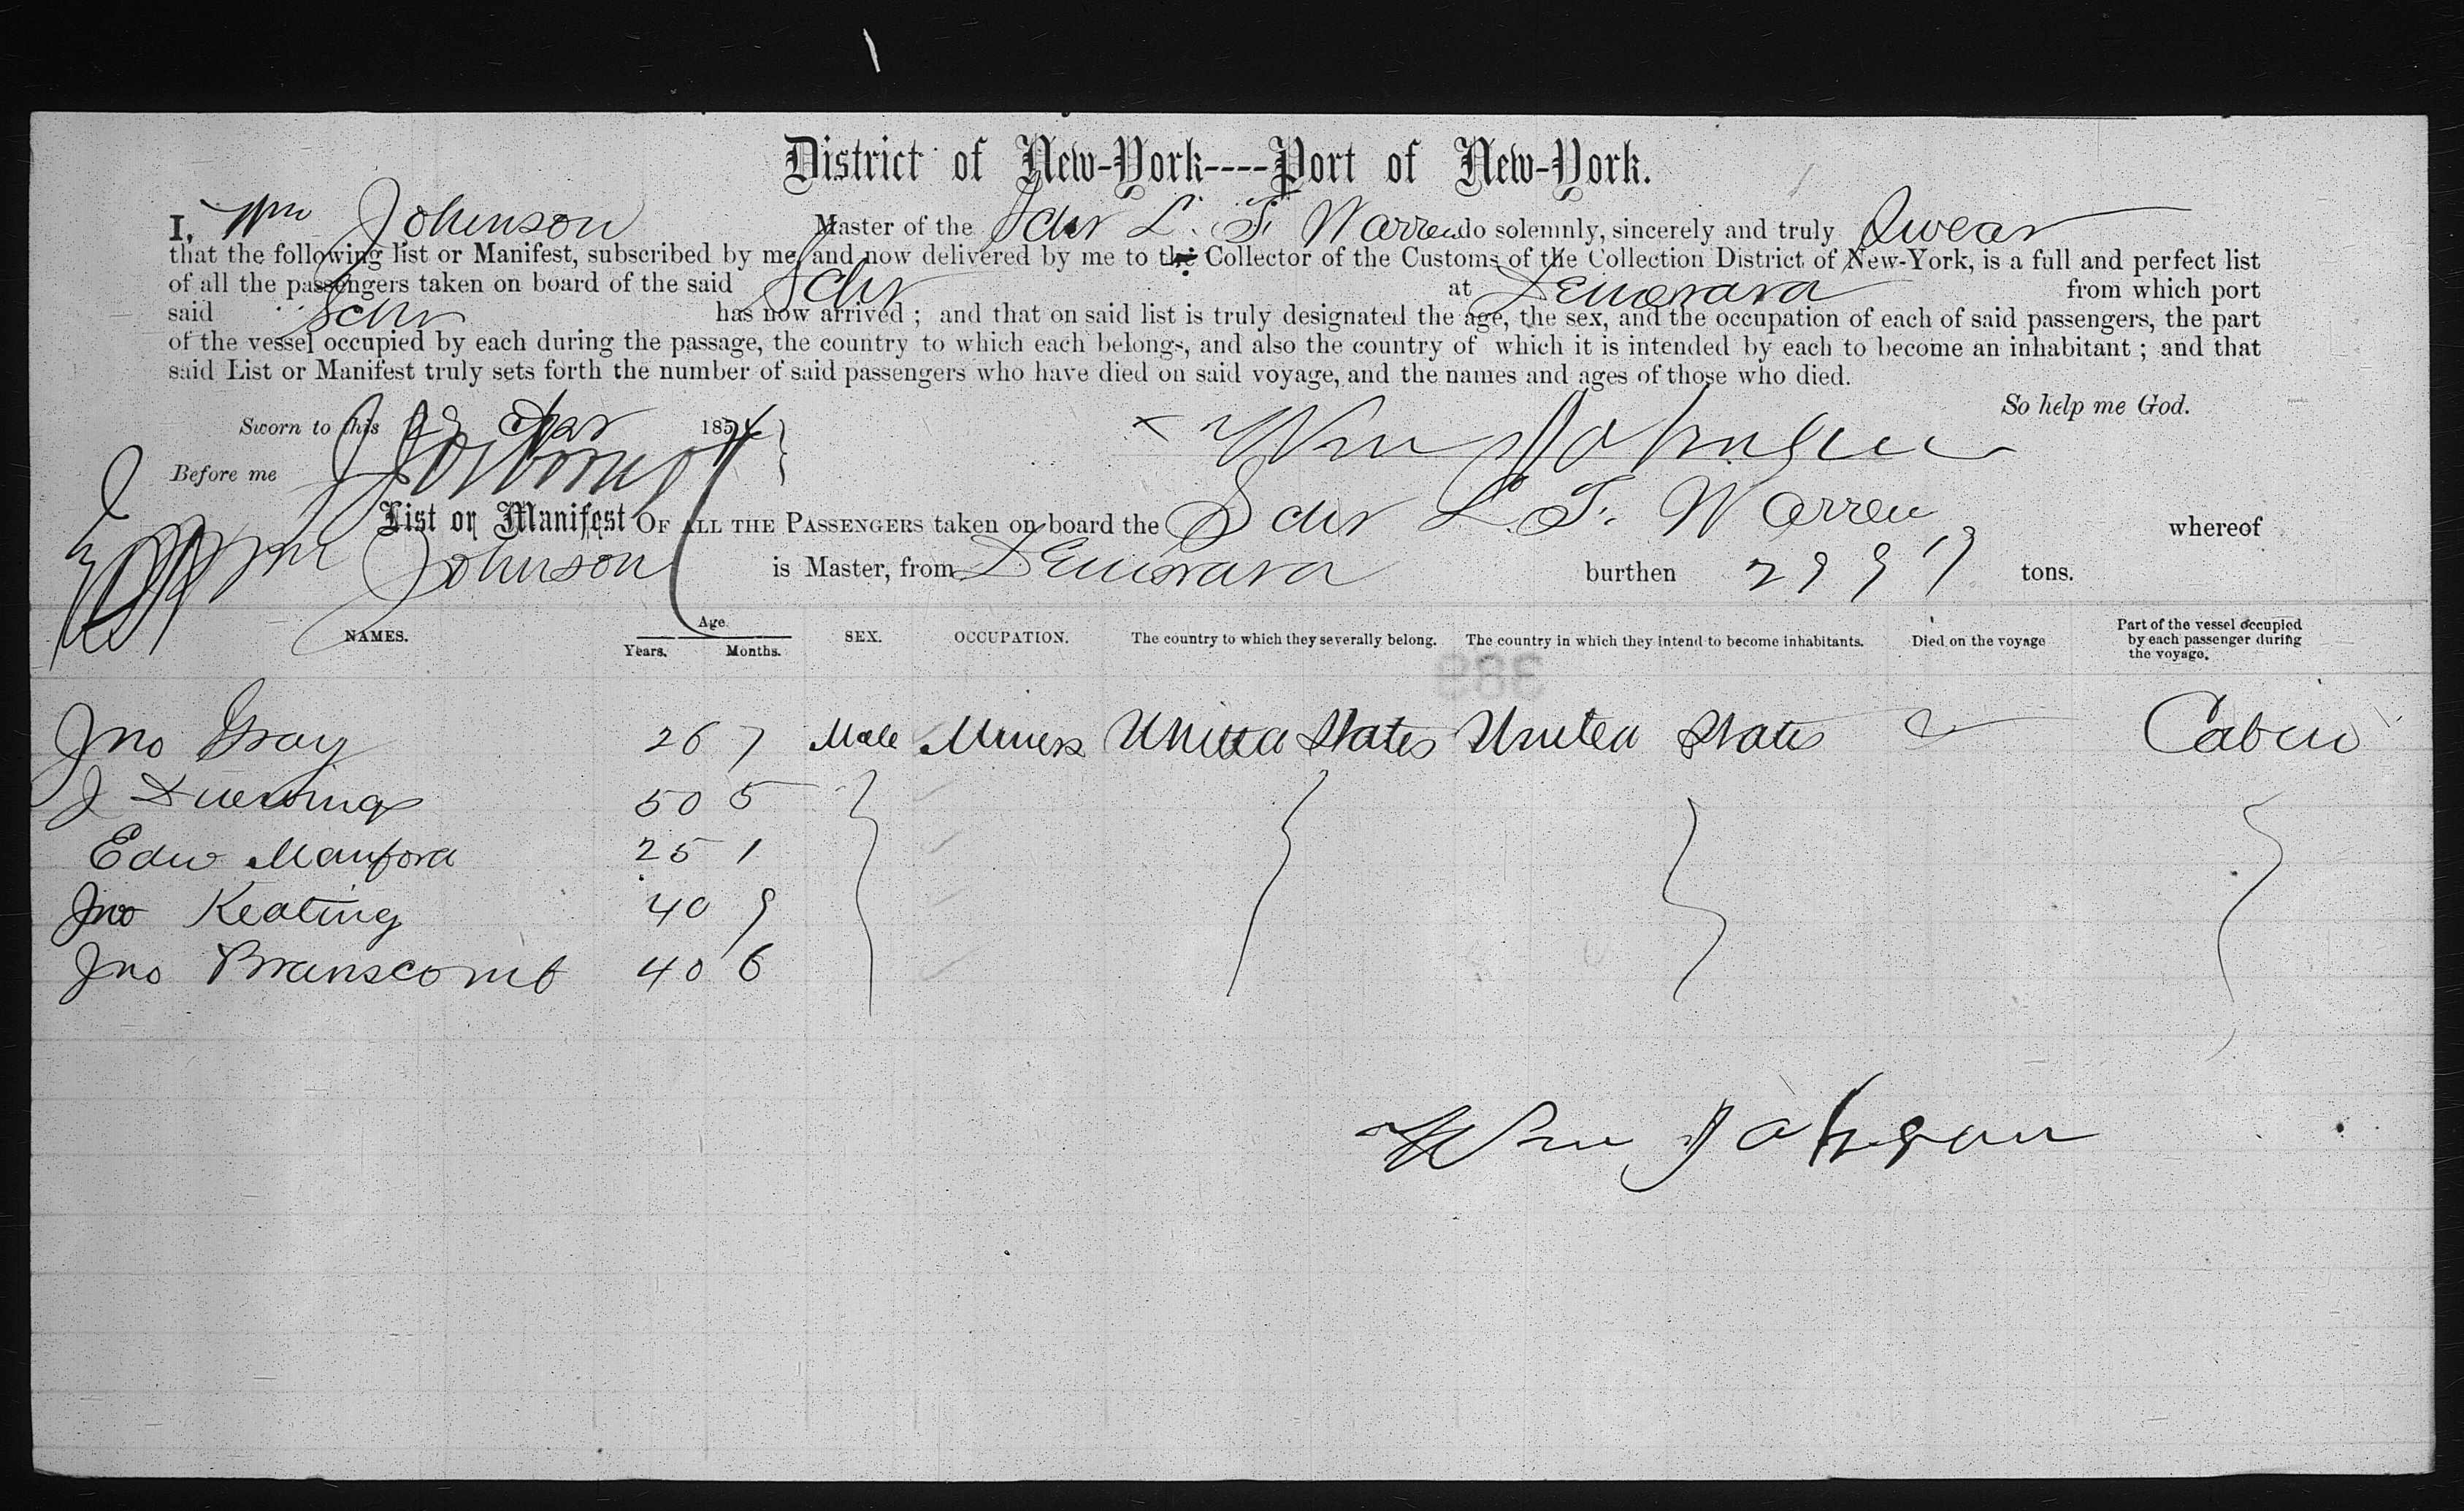 District of New-York----Port of New-York.
I, Wm Johnson Master of the Schr L. T. Warren do solemnly, sincerely and truly Swear
that the following list or Manifest, subscribed by me, and now delivered by me to the Collector of the Customs of the Collection District of New-York, is a full and perfect list
of all the passengers taken on board of the said Schr at Demerara from which port
said Schr has now arrived ; and that on said list is truly designated the age, the sex, and the occupation of each of said passengers, the part
of the vessel occupied by each during the passage, the country to which each belongs, and also the country of which it is intended by each to become an inhabitant ; and that
said List or Manifest truly sets forth the number of said passengers who have died on said voyage, and the names and ages of those who died.
So help me God.
Sworn to this 29 185
Wm Johnson
Before me
List or Manifest OF ALL THE PASSENGERS taken on board the Schr L. T. Warren whereof
Wm Johnson is Master, from Demerara burthen tons.
NAMES. Age. Years. Months. SEX. OCCUPATION. The country to which they severally belong. The country in which they intend to become inhabitants. Died on the voyage Part of the vessel occupied by each passenger during the voyage.
389
Jno Gray 26 7 Male Miners United States United States Cabin
J 50 5
Edw Manford 25 1
Jno Keating 40 9
Jno Branscomb 40 6
Wm Johnson